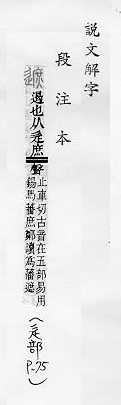 說文解字
段注本
遮遏也从辵庶聲
止車切古音在五部易用
錫馬蕃庶鄭讀為藩遮
(辵部 P.75)